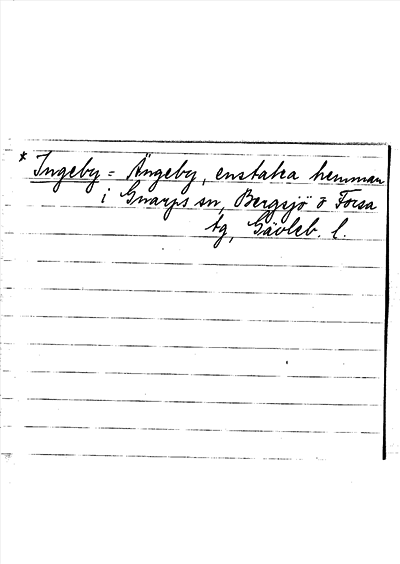 * Ingeby = Ängeby, enstaka hemman
i Gnarps sn, Bergsjö o Forsa
tg, Gävleb. l.